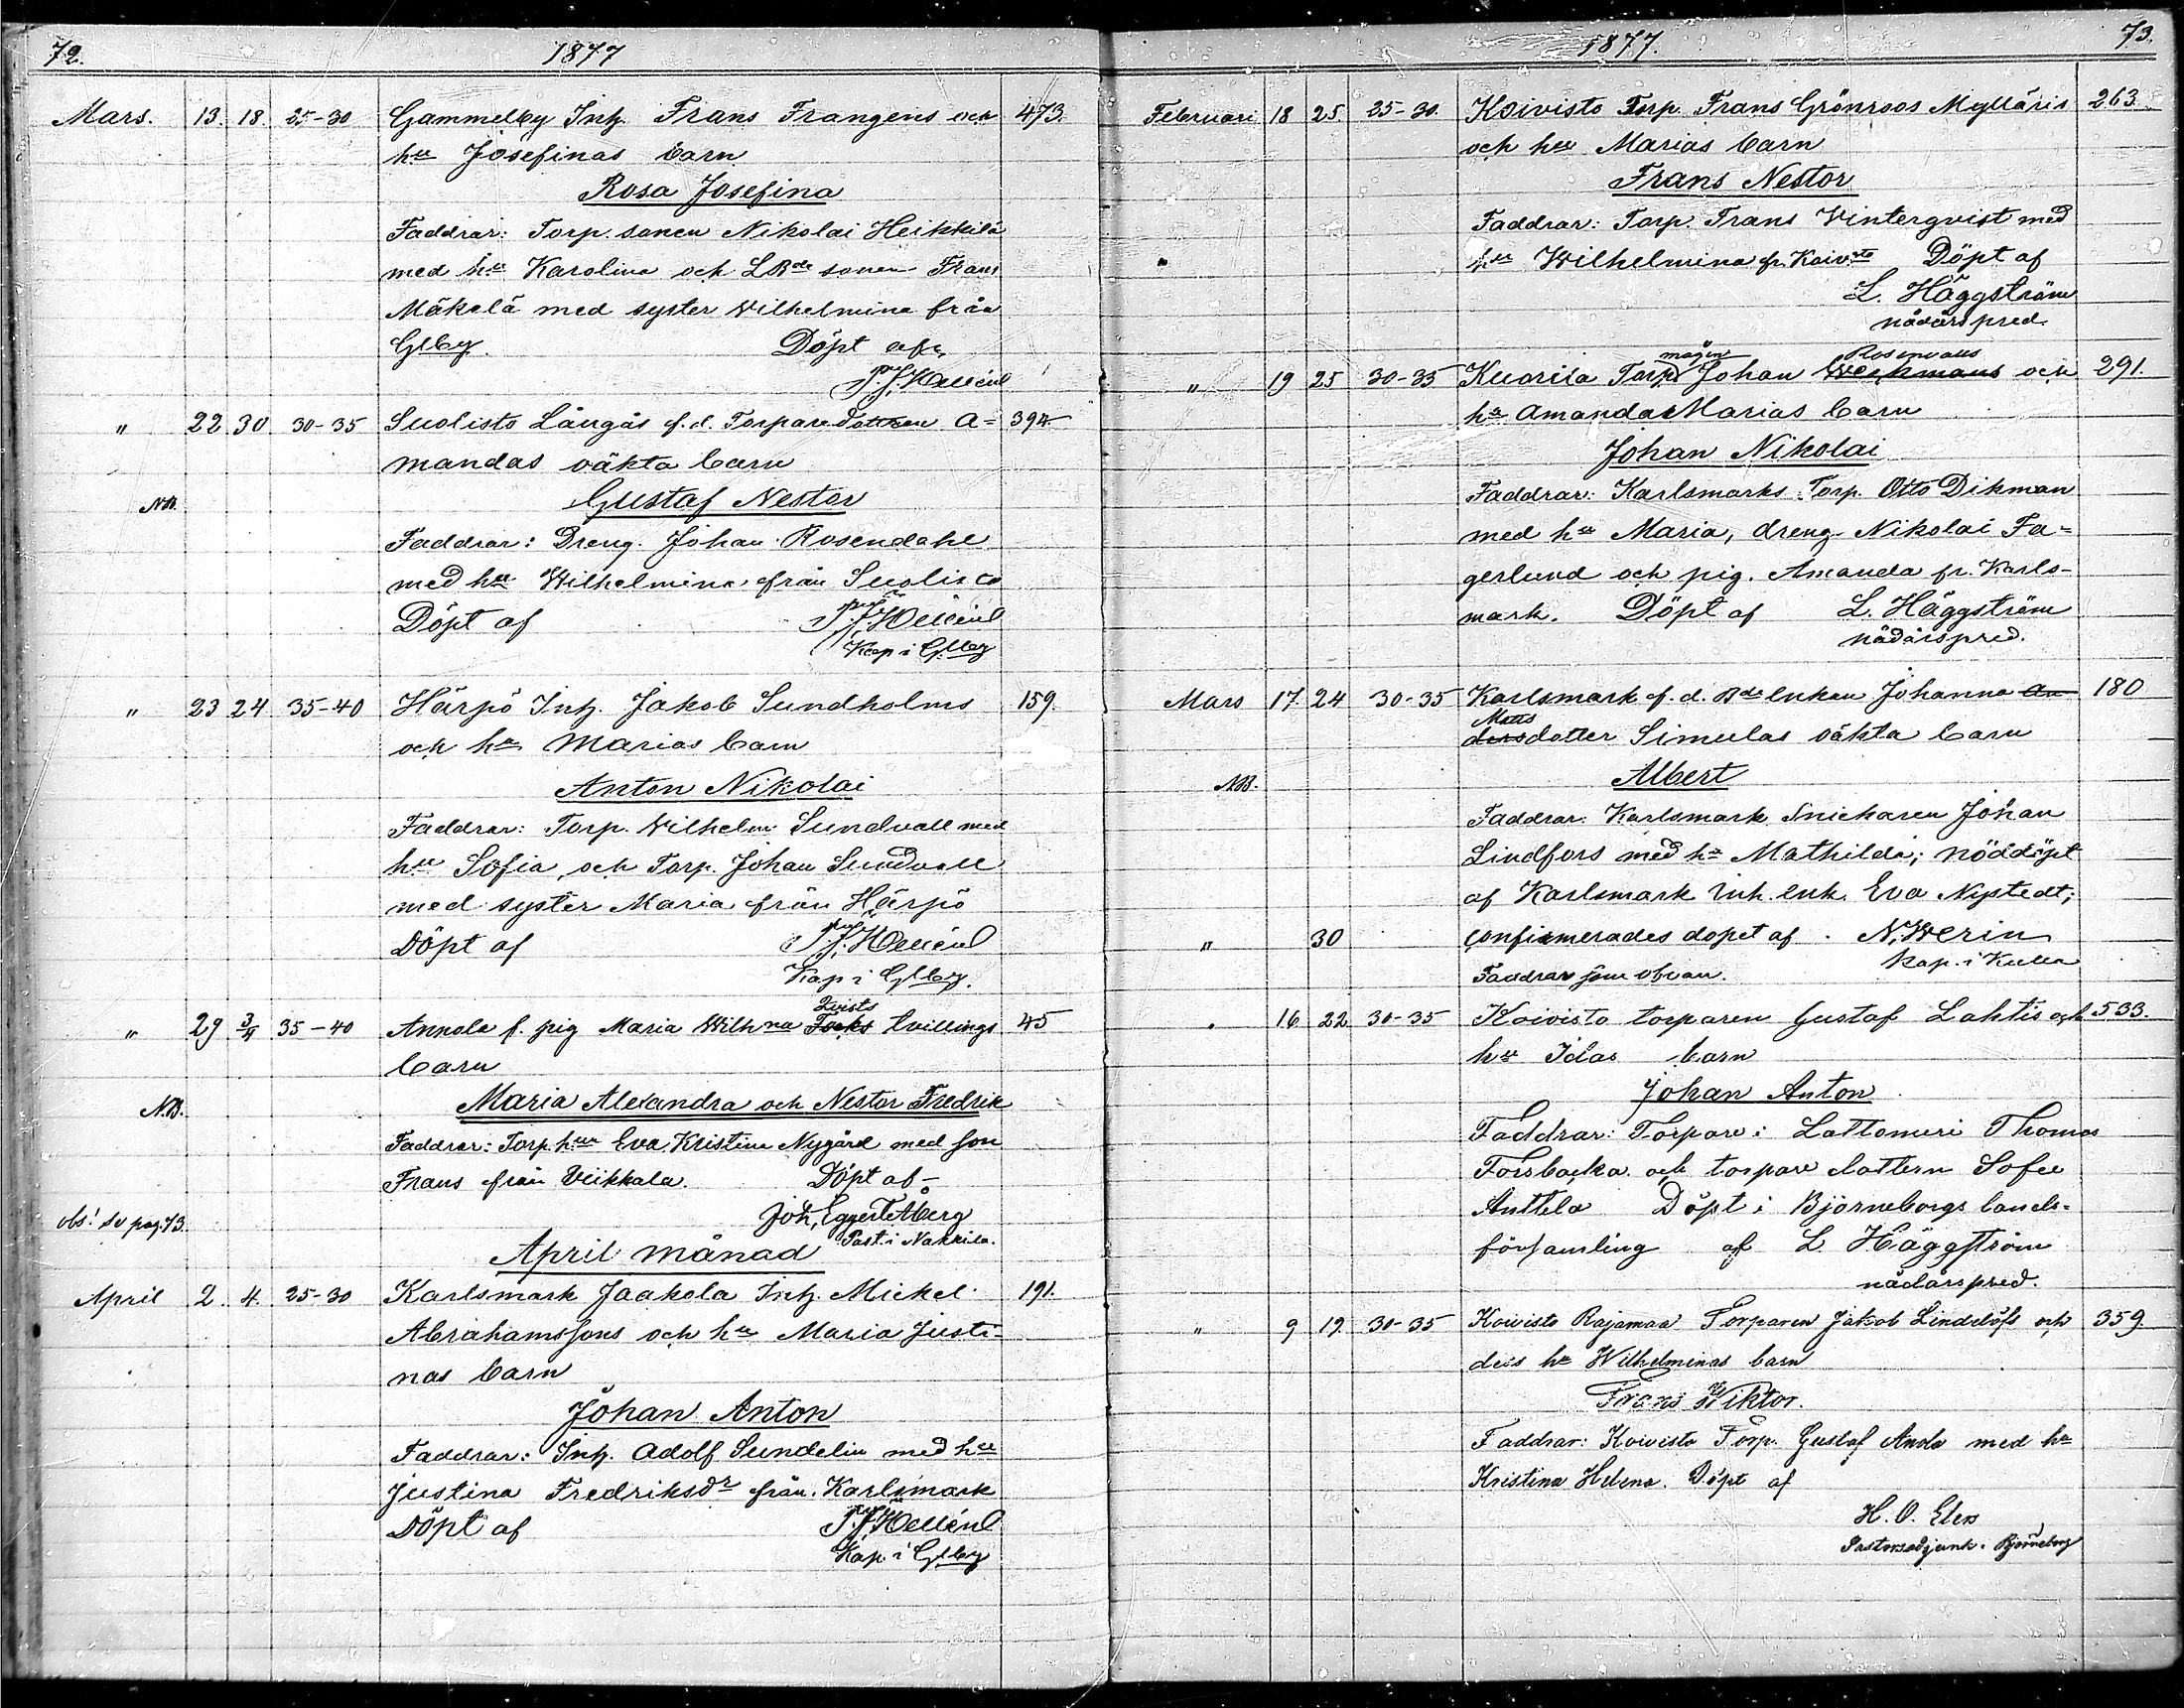 72.
1877
Mars. 13. 18. 25-30 Gammelby Inh. Frans Frangens och 473.
hu Josefinas barn
Rosa Josefina
Faddrar: Torp. sonen Nikolai Heikkilä
med hu Karolina och LBde sonen Frans
Mäkelä med syster Wilhelmina från
Glby. Döpt af
" 22 30 30-35 Suolisto Långås f.d. Torpare A= 394
mandas oäkta barn
NB. Gustaf Nestor
Faddrar: Dreng. Johan Rosendahl
med hu Wilhelmina från Suolisto
Döpt af
Kap i Glby
" 23 24 35-40 Härpö Inh. Jakob Sundholms 159.
och hu Marias barn
Anton Nikolai
Faddrar: Torp. Wilhelm Sundvall med
hu Sofia, och Torp. Johan Sundvall
med syster Maria från Härpö
Döpt af
Kap i Glby.
Qvists
" 29 3/4 35-40 Annola f. pig Maria Wilhna Foeks tvillings 45
barn
N.B. Maria Alexandra och Nestor Fredrik
Faddrar: Torp. hu Eva Kristina Nygård med son
Frans från Viikkala. Döpt af
obs! se pag. 73. Joh. Eggert Åberg
Past. i Nakkila.
April månad
April 2. 4. 25-30 Karlsmark Jaakola Inh. Mickel 191.
Abrahamssons och hu Maria Justi-
nas barn
Johan Anton
Faddrar: Inh. Adolf Sundelin med hu
Justina Fredriksdr från Karlsmark
Döpt af
Kap. i Glby
1877.
73.
Februari 18 25 25-30. Koivisto Torp. Frans Grönroos Mylläris 263.
och hu Marias barn
Frans Nestor
Faddrar: Torp. Frans Vintergvist med
hu Wilhelmina fr. Koivsto Döpt af
L. Häggström
nådårspred.
mågen Rosenvalls
" 19 25 30-35 Kuorila Torp. Johan Weckmans och 291.
hu Amanda Marias barn
Johan Nikolai
Faddrar: Karlsmarks Torp. Otto Dikman
med hu Maria, dreng Nikolai Fa=
gerlund och pig. Amanda fr. Karls-
mark. Döpt af L. Häggström
nådårspred.
Mars 17. 24 30-35 Karlsmark f.d. Bde enkan Johanna An 180
Matts
dersdotter Simulas oäkta barn
NB. Albert
Faddrar: Karlsmark Snickaren Johan
Lindfors med hu Mathilda; nöddöpt
af Karlsmark Inh. enk. Eva Nystedt;
" 30 confirmerades dopet af N. Werin
Kap. i Kulla
Faddrar som ofvan.
" 16 22 30-35 Koivisto torparen Gustaf Lahtis och 533.
hu Idas barn
Johan Anton
Faddrar: Torpare i Lattomeri Thomas
Forsbacka och torpare dottern Sofie
Anttila Döpt i Björneborgs lands-
församling af L. Häggström
nådårspred.
" 9 19. 30-35 Koivisto Rajamaa Torparen Jakob Lindelöfs och 359
dess hu Wilhelminas barn
Frans Wiktor.
Faddrar: Koivisto Torp. Gustaf Ando med hu
Kristina Helena. Döpt af
H. O. Elers
Pastorsadjunk. i Björneborg